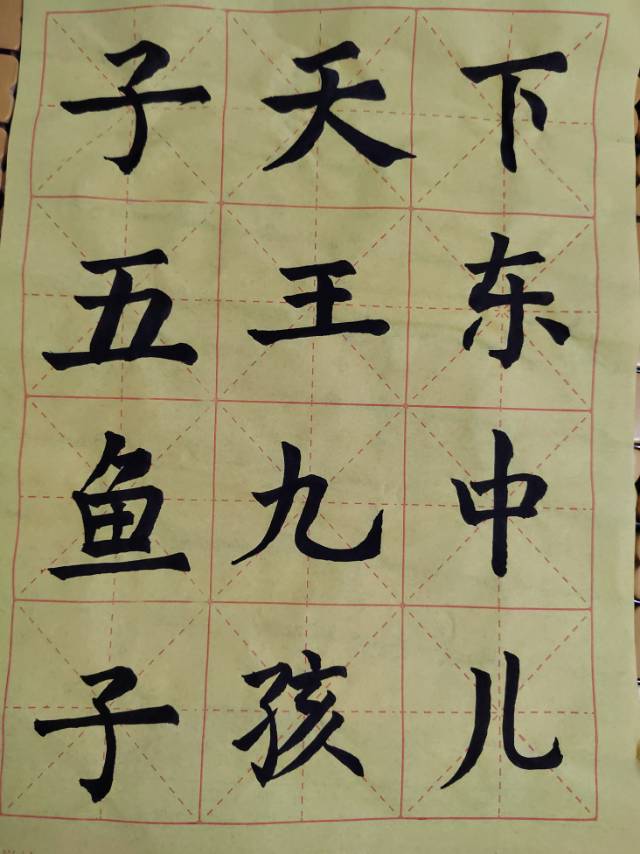 子天下
五王东
鱼九中
子孩儿